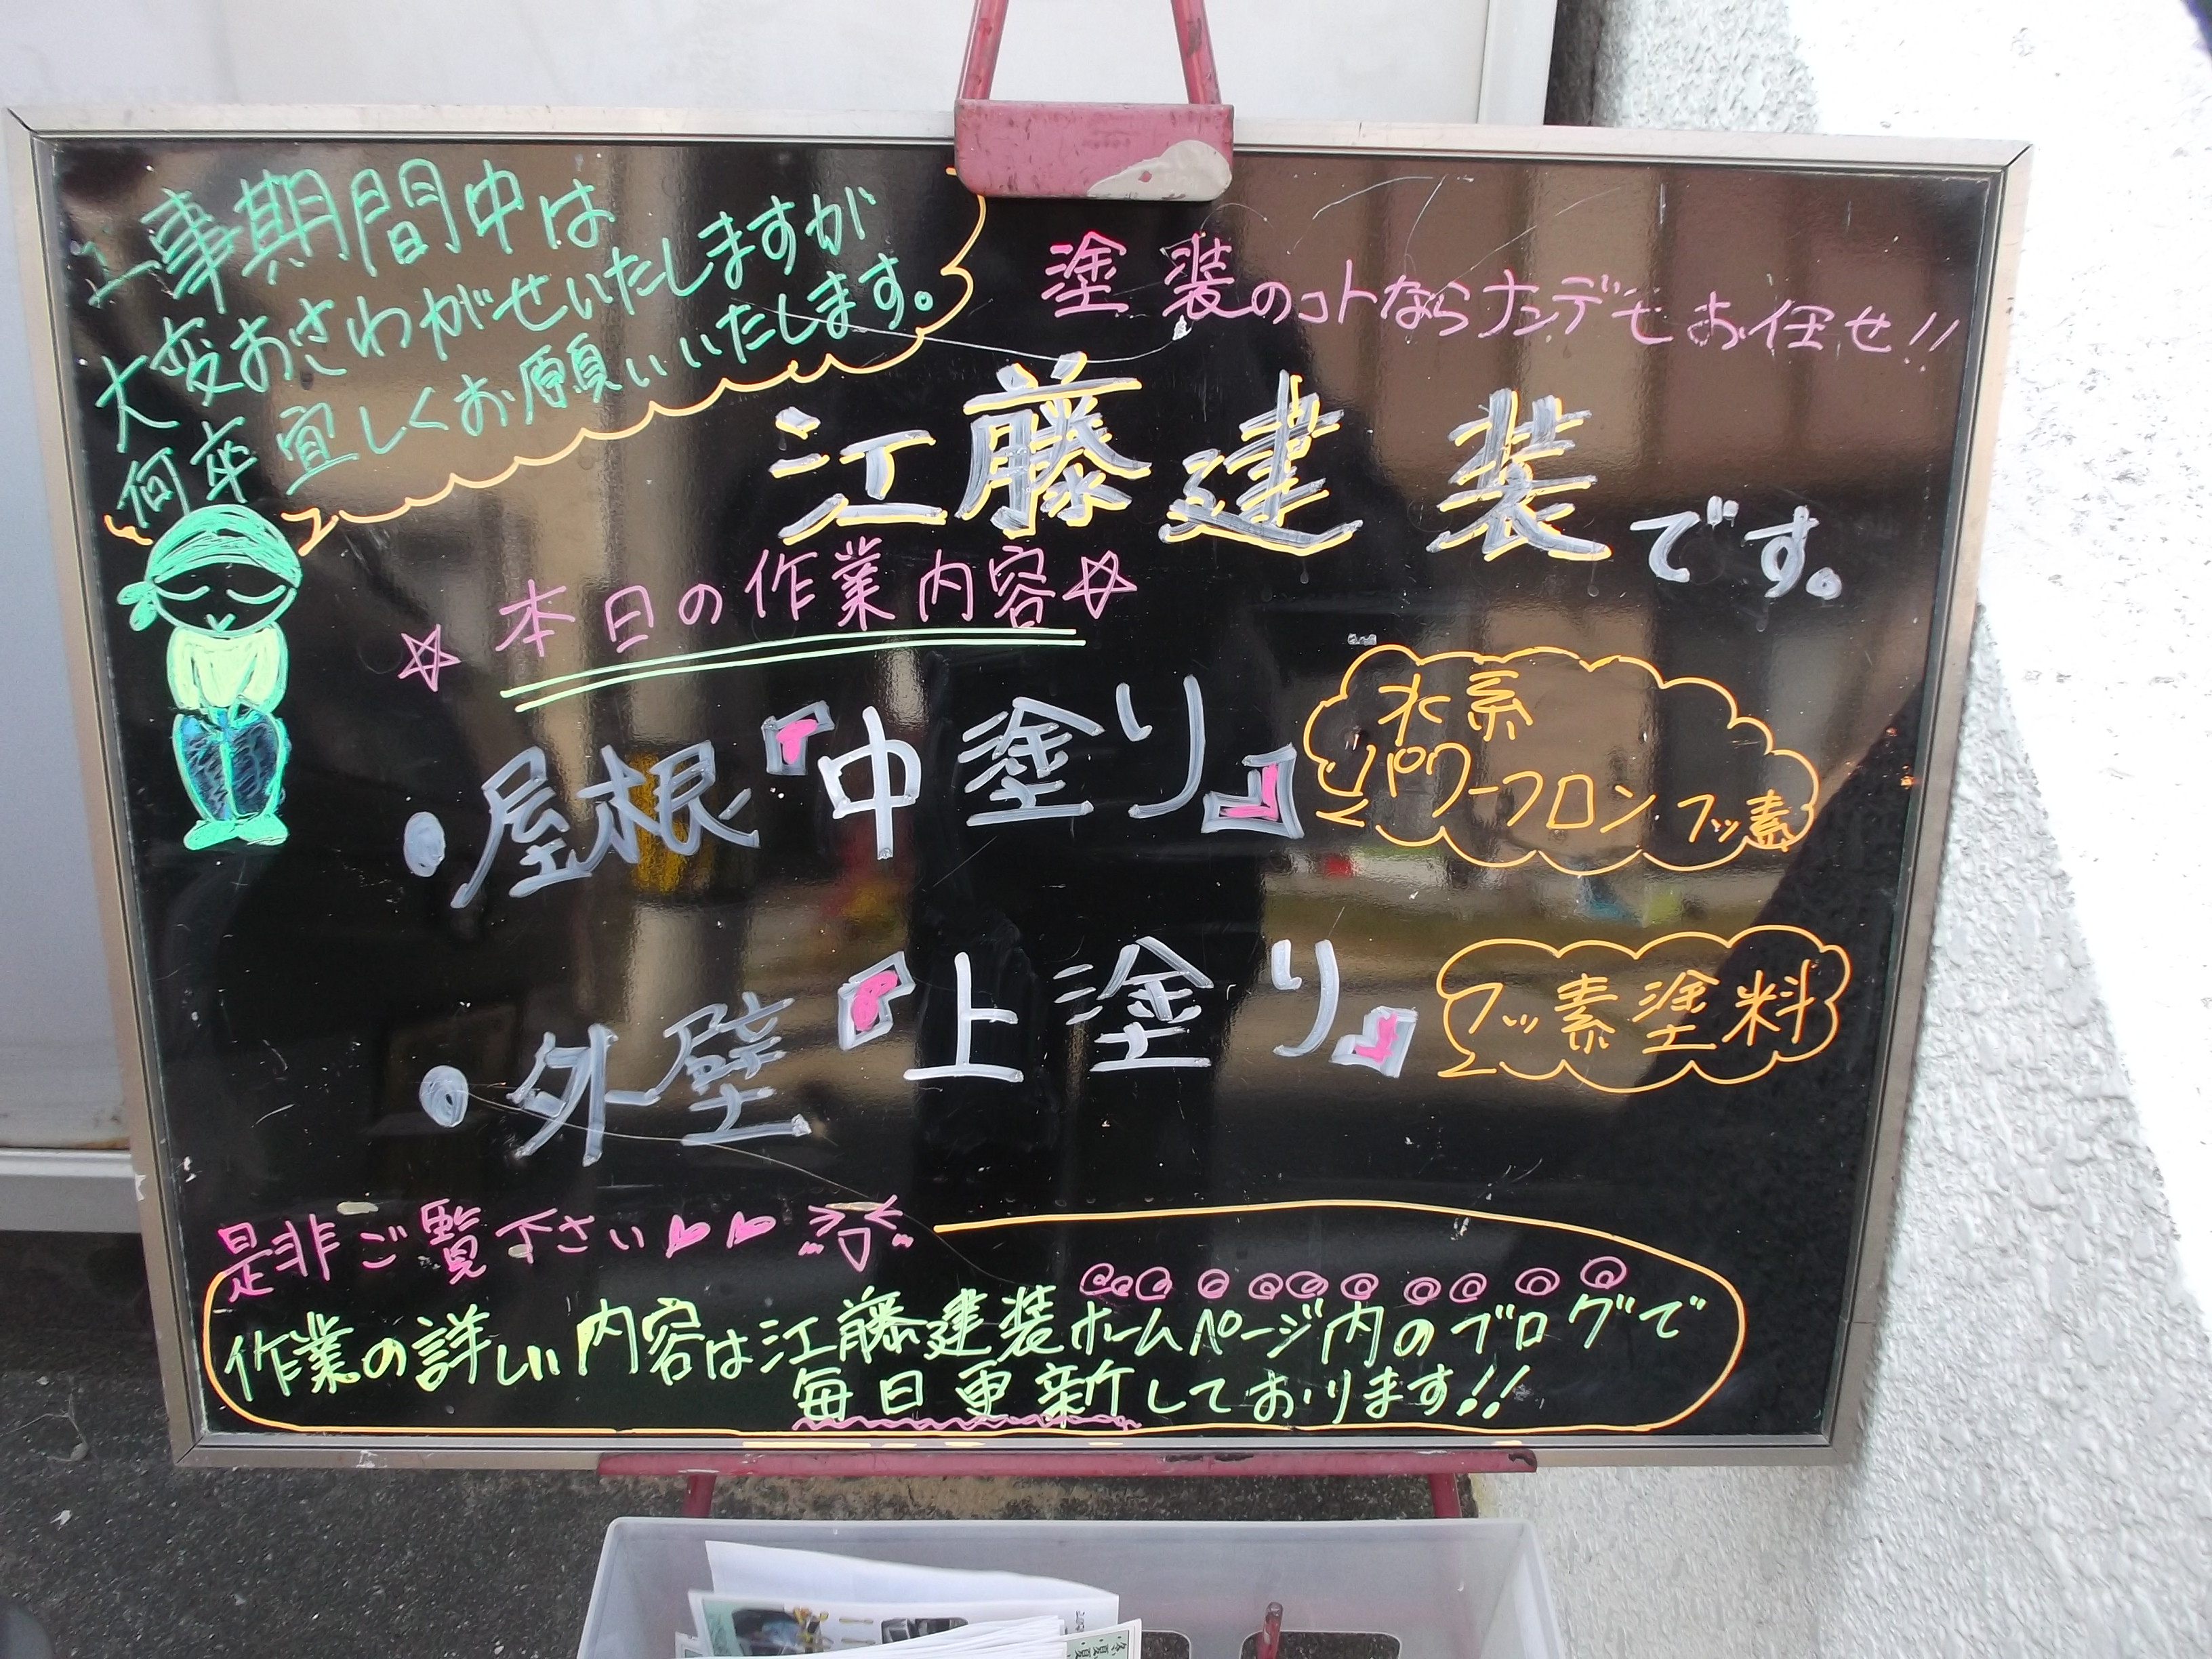 工事期間中は
大変おさわがせいたしますが
何卒宜しくお願いいたします。
塗装のコトならナンデモお任せ!!
江藤建装です。
☆本日の作業内容☆
・屋根『中塗り』
水系
パワーフロンフッ素
・外壁『上塗り』
フッ素塗料
是非ご覧下さい
作業の詳しい内容は江藤建装ホームページ内のブログで
毎日更新しております!!